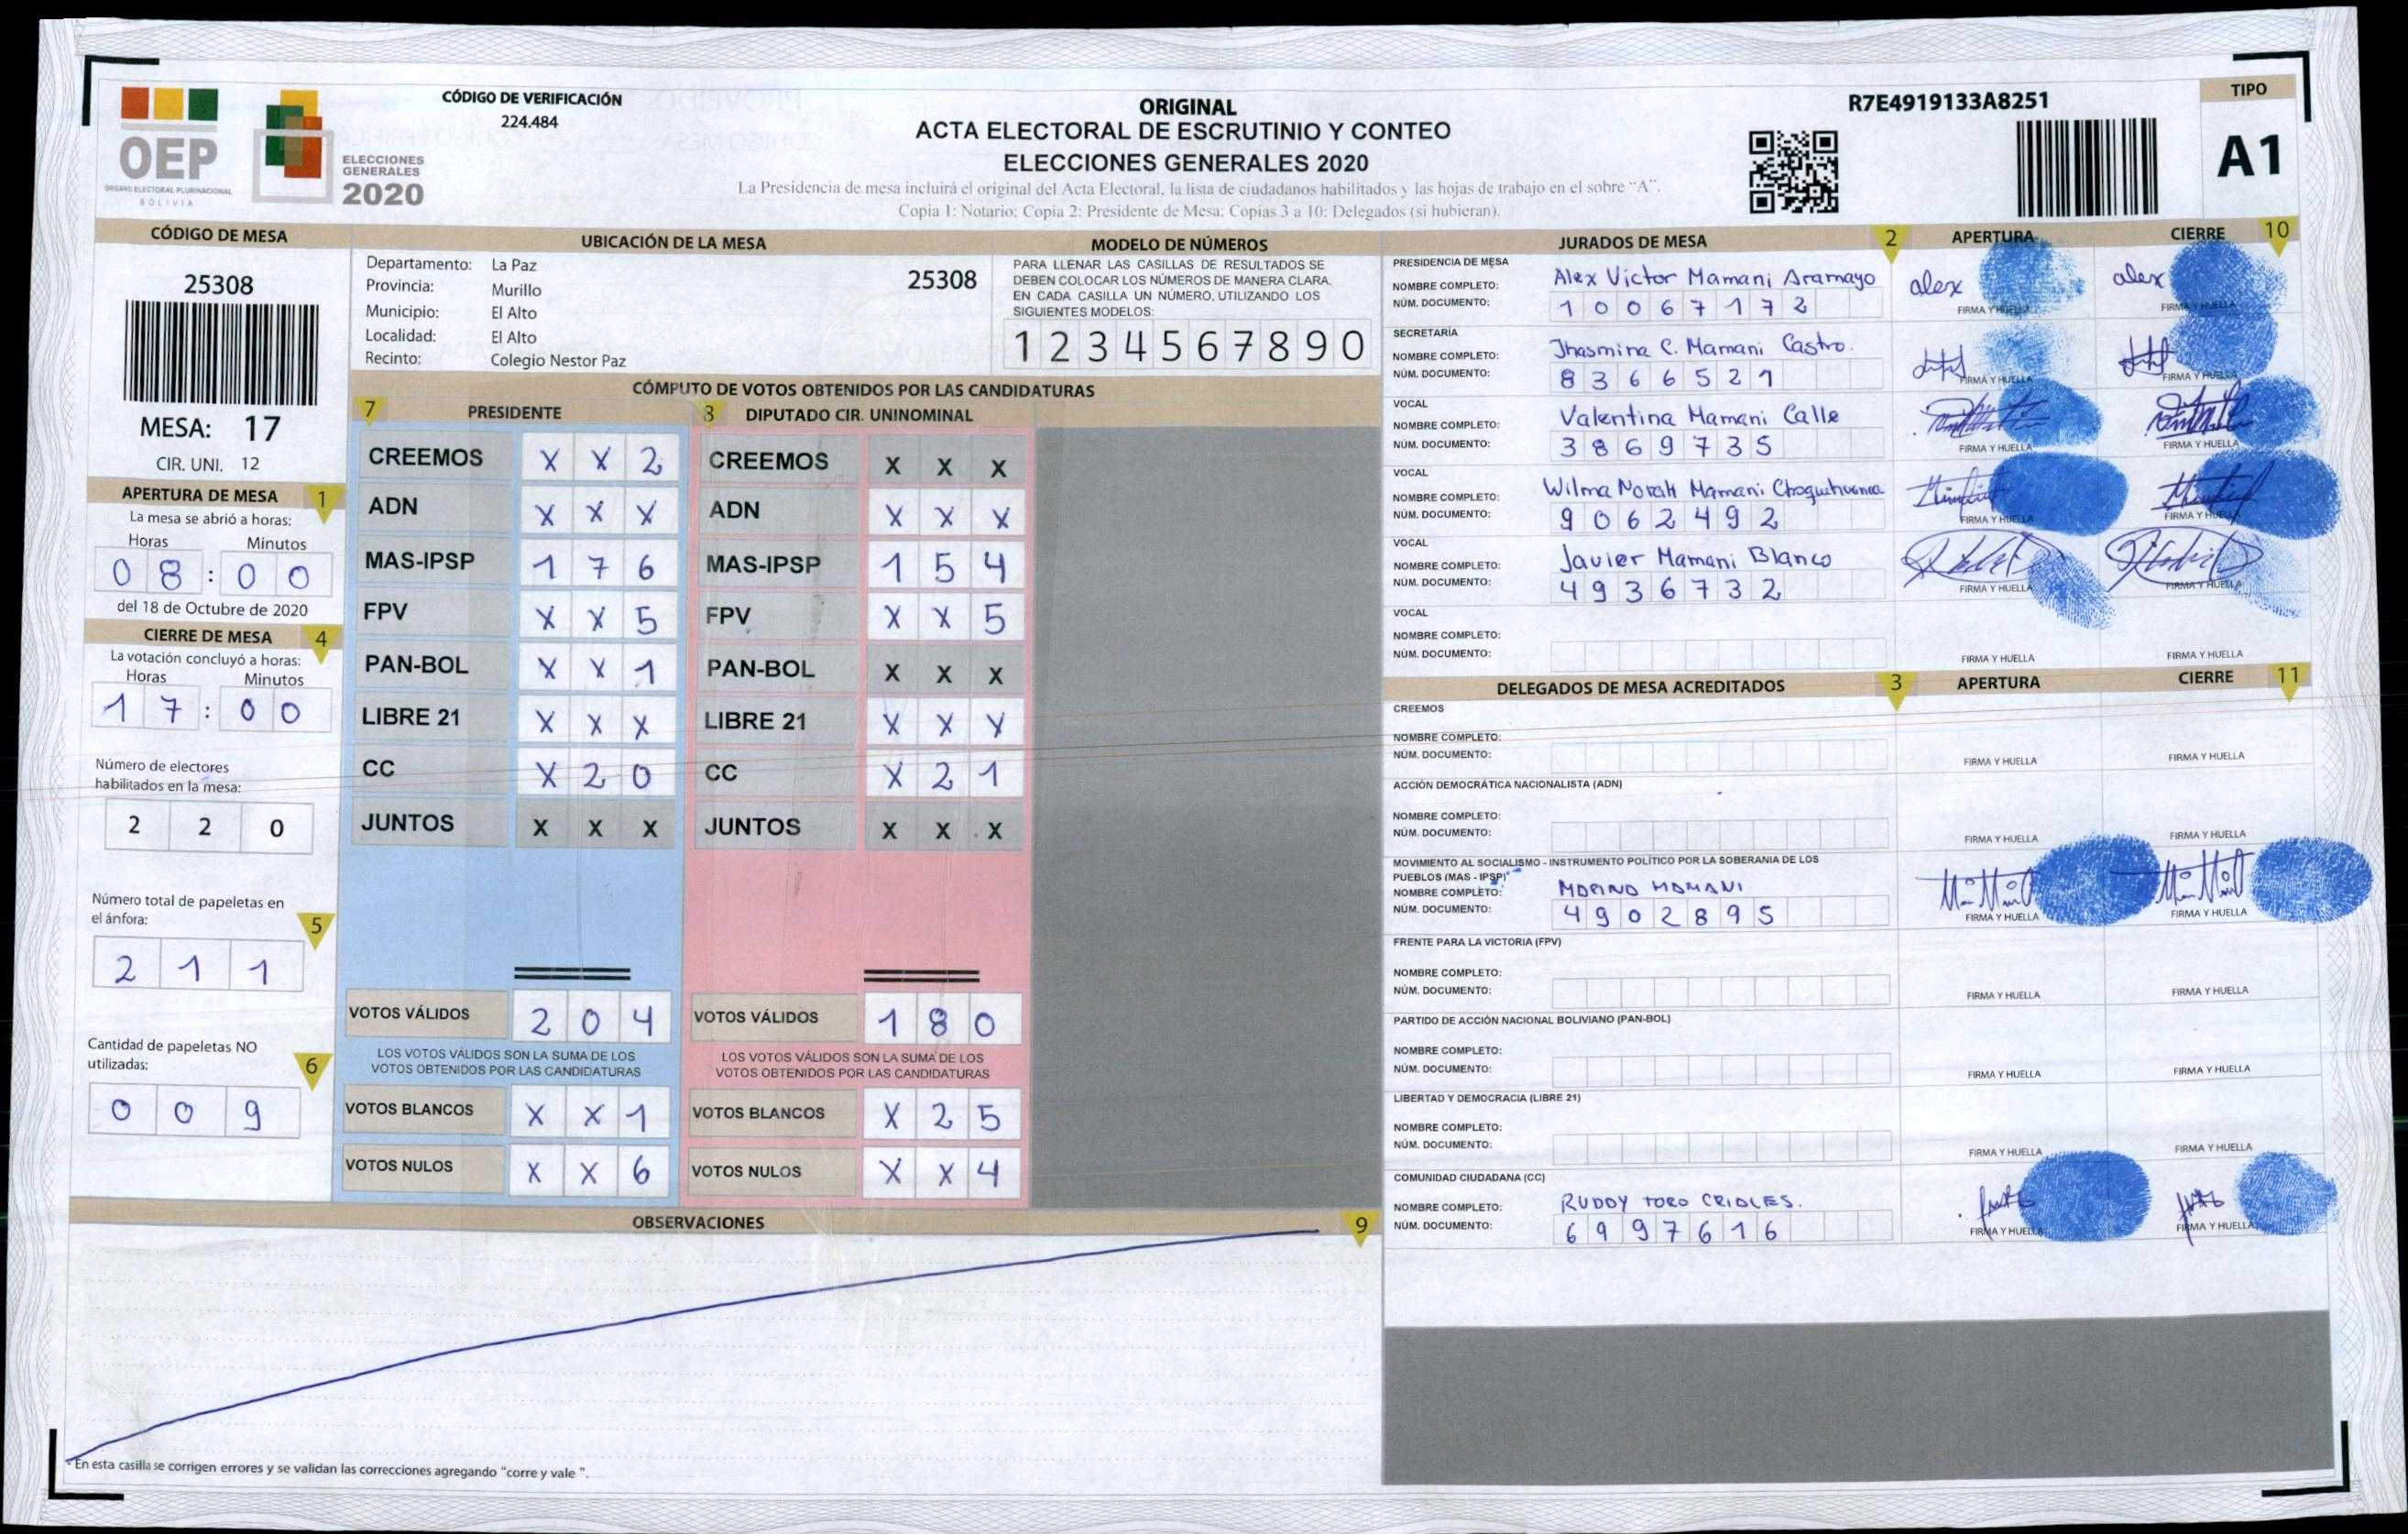 OEP
ÓRGANO ELECTORAL PLURINACIONAL
BOLIVIA
ELECCIONES
GENERALES
2020
CÓDIGO DE VERIFICACIÓN
224.484
ORIGINAL
ACTA ELECTORAL DE ESCRUTINIO Y CONTEO
ELECCIONES GENERALES 2020
La Presidencia de mesa incluirá el original del Acta Electoral, la lista de ciudadanos habilitados y las hojas de trabajo en el sobre "A".
Copia 1: Notario; Copia 2: Presidente de Mesa; Copias 3 a 10: Delegados (si hubieran).
R7E4919133A8251
TIPO
A1
CÓDIGO DE MESA
25308
MESA: 17
CIR. UNI. 12
APERTURA DE MESA 1
La mesa se abrió a horas:
Horas Minutos
0 8 : 0 0
del 18 de Octubre de 2020
CIERRE DE MESA 4
La votación concluyó a horas:
Horas Minutos
1 7 : 0 0
Número de electores
habilitados en la mesa:
2 2 0
Número total de papeletas en
el ánfora: 5
2 1 1
Cantidad de papeletas NO
utilizadas: 6
0 0 9
UBICACIÓN DE LA MESA
Departamento: La Paz 25308
Provincia: Murillo
Municipio: El Alto
Localidad: El Alto
Recinto: Colegio Nestor Paz
MODELO DE NÚMEROS
PARA LLENAR LAS CASILLAS DE RESULTADOS SE
DEBEN COLOCAR LOS NÚMEROS DE MANERA CLARA.
EN CADA CASILLA UN NÚMERO, UTILIZANDO LOS
SIGUIENTES MODELOS:
1 2 3 4 5 6 7 8 9 0
CÓMPUTO DE VOTOS OBTENIDOS POR LAS CANDIDATURAS
7 PRESIDENTE
CREEMOS X X 2
ADN X X X
MAS-IPSP 1 7 6
FPV X X 5
PAN-BOL X X 1
LIBRE 21 X X X
CC X 2 0
JUNTOS X X X
VOTOS VÁLIDOS 2 0 4
LOS VOTOS VÁLIDOS SON LA SUMA DE LOS
VOTOS OBTENIDOS POR LAS CANDIDATURAS
VOTOS BLANCOS X X 1
VOTOS NULOS X X 6
8 DIPUTADO CIR. UNINOMINAL
CREEMOS X X X
ADN X X X
MAS-IPSP 1 5 4
FPV X X 5
PAN-BOL X X X
LIBRE 21 X X X
CC X 2 1
JUNTOS X X X
VOTOS VÁLIDOS 1 8 0
LOS VOTOS VÁLIDOS SON LA SUMA DE LOS
VOTOS OBTENIDOS POR LAS CANDIDATURAS
VOTOS BLANCOS X 2 5
VOTOS NULOS X X 4
OBSERVACIONES 9
* En esta casilla se corrigen errores y se validan las correcciones agregando "corre y vale ".
JURADOS DE MESA 2 APERTURA CIERRE 10
PRESIDENCIA DE MESA
NOMBRE COMPLETO: Alex Victor Mamani Aramayo alex alex
NÚM. DOCUMENTO: 1 0 0 6 7 1 7 2 FIRMA Y HUELLA FIRMA Y HUELLA
SECRETARÍA
NOMBRE COMPLETO: Jhasmina C. Mamani Castro.
NÚM. DOCUMENTO: 8 3 6 6 5 2 1 FIRMA Y HUELLA FIRMA Y HUELLA
VOCAL
NOMBRE COMPLETO: Valentina Mamani Calle
NÚM. DOCUMENTO: 3 8 6 9 7 3 5 FIRMA Y HUELLA FIRMA Y HUELLA
VOCAL
NOMBRE COMPLETO: Wilma Norah Mamani Choquehuanca
NÚM. DOCUMENTO: 9 0 6 2 4 9 2 FIRMA Y HUELLA FIRMA Y HUELLA
VOCAL
NOMBRE COMPLETO: Javier Mamani Blanco
NÚM. DOCUMENTO: 4 9 3 6 7 3 2 FIRMA Y HUELLA FIRMA Y HUELLA
VOCAL
NOMBRE COMPLETO:
NÚM. DOCUMENTO: FIRMA Y HUELLA FIRMA Y HUELLA
DELEGADOS DE MESA ACREDITADOS 3 APERTURA CIERRE 11
CREEMOS
NOMBRE COMPLETO:
NÚM. DOCUMENTO: FIRMA Y HUELLA FIRMA Y HUELLA
ACCIÓN DEMOCRÁTICA NACIONALISTA (ADN)
NOMBRE COMPLETO:
NÚM. DOCUMENTO: FIRMA Y HUELLA FIRMA Y HUELLA
MOVIMIENTO AL SOCIALISMO - INSTRUMENTO POLÍTICO POR LA SOBERANIA DE LOS
PUEBLOS (MAS - IPSP)
NOMBRE COMPLETO: MARINO MAMANI
NÚM. DOCUMENTO: 4 9 0 2 8 9 5 FIRMA Y HUELLA FIRMA Y HUELLA
FRENTE PARA LA VICTORIA (FPV)
NOMBRE COMPLETO:
NÚM. DOCUMENTO: FIRMA Y HUELLA FIRMA Y HUELLA
PARTIDO DE ACCIÓN NACIONAL BOLIVIANO (PAN-BOL)
NOMBRE COMPLETO:
NÚM. DOCUMENTO: FIRMA Y HUELLA FIRMA Y HUELLA
LIBERTAD Y DEMOCRACIA (LIBRE 21)
NOMBRE COMPLETO:
NÚM. DOCUMENTO: FIRMA Y HUELLA FIRMA Y HUELLA
COMUNIDAD CIUDADANA (CC)
NOMBRE COMPLETO: RUDDY TORO CRIALES.
NÚM. DOCUMENTO: 6 9 9 7 6 1 6 FIRMA Y HUELLA FIRMA Y HUELLA